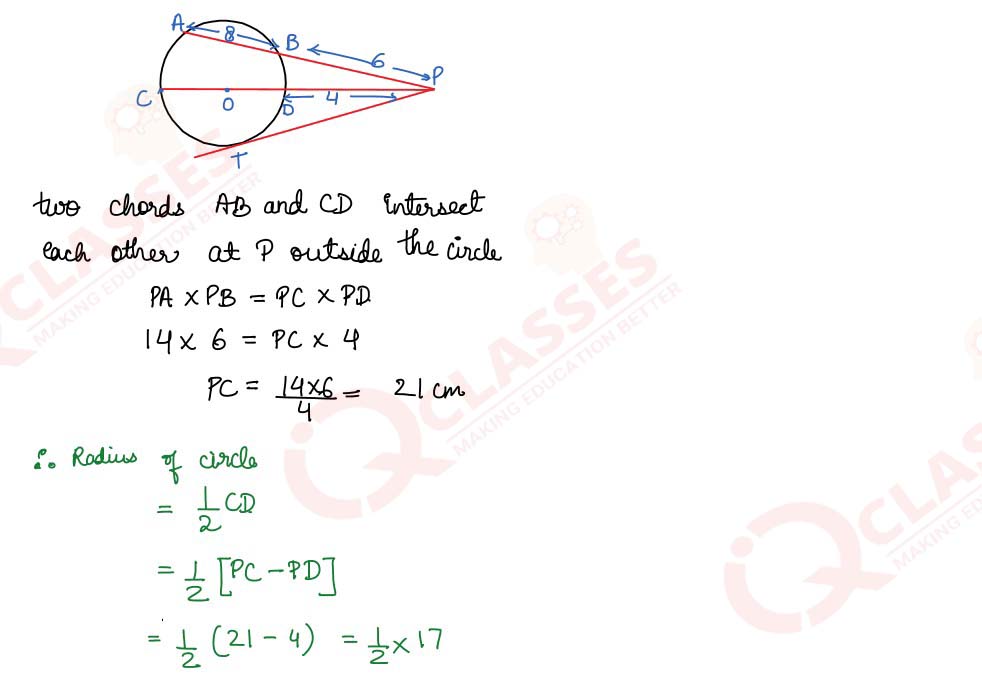 A 8 B 6 P
C O D 4
T
two chords AB and CD intersect
each other at P outside the circle
PA × PB = PC × PD
14 × 6 = PC × 4
PC = 14×6/4 = 21 cm
∴ Radius of circle
= 1/2 CD
= 1/2 [PC − PD]
= 1/2 (21 − 4) = 1/2 × 17
CLASSES
MAKING EDUCATION BETTER
IQ CLASSES
MAKING EDUCATION BETTER
IQ CLASSES
MAKING ED